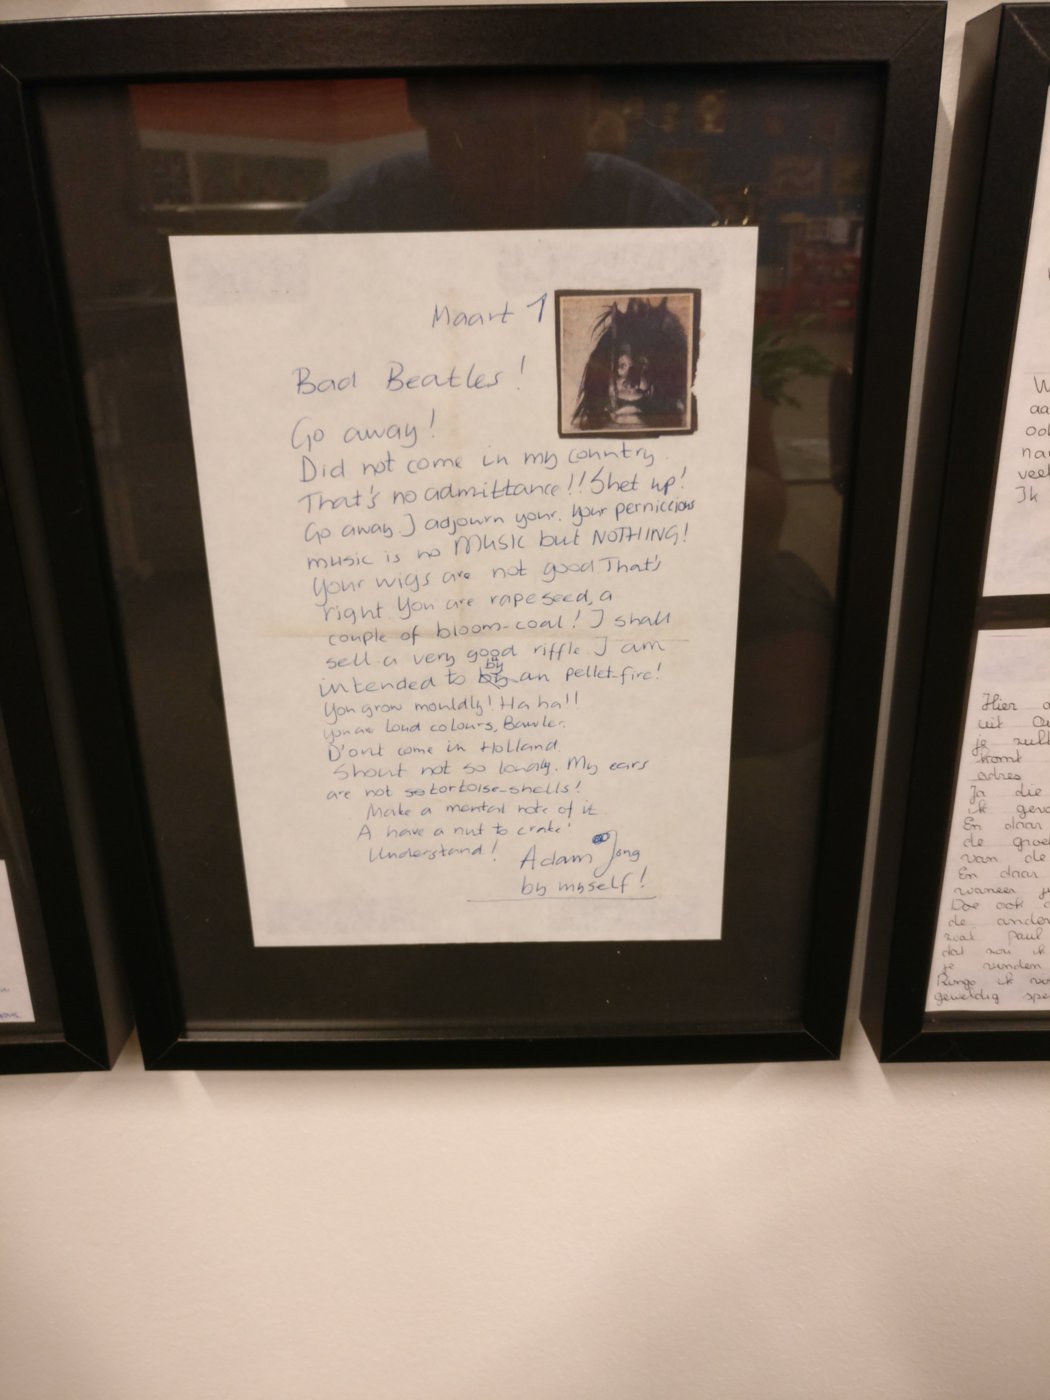 Maart 1
Bad Beatles!
Go away!
Did not come in my country.
That's no admittance!! Shet up!
Go away I adjourn your. your perniccious
music is no MUSIC but NOTHING!
Your wigs are not good That's
right. You are rapeseed, a
couple of bloom-coal! I shall
sell a very good riffle. I am
intended to by an pellet-fire!
You grow mouldly! Ha ha!!
you are loud colours, Bawler.
D'ont come in Holland
Shout not so loudly. My ears
are not so tortoise-shells!
Make a mental note of it
A have a nut to crake!
Understand!
Adam Jong
by myself!
W
aa
ook
naa
veel
Ik
Hier
uit
je zult
komt
adres
Ja die
ik
En daar
de
van de
En daar
waneer
Doe ook
de ander
zoal paul
dat nou ik
je vinden
Ringo ik
geweldig